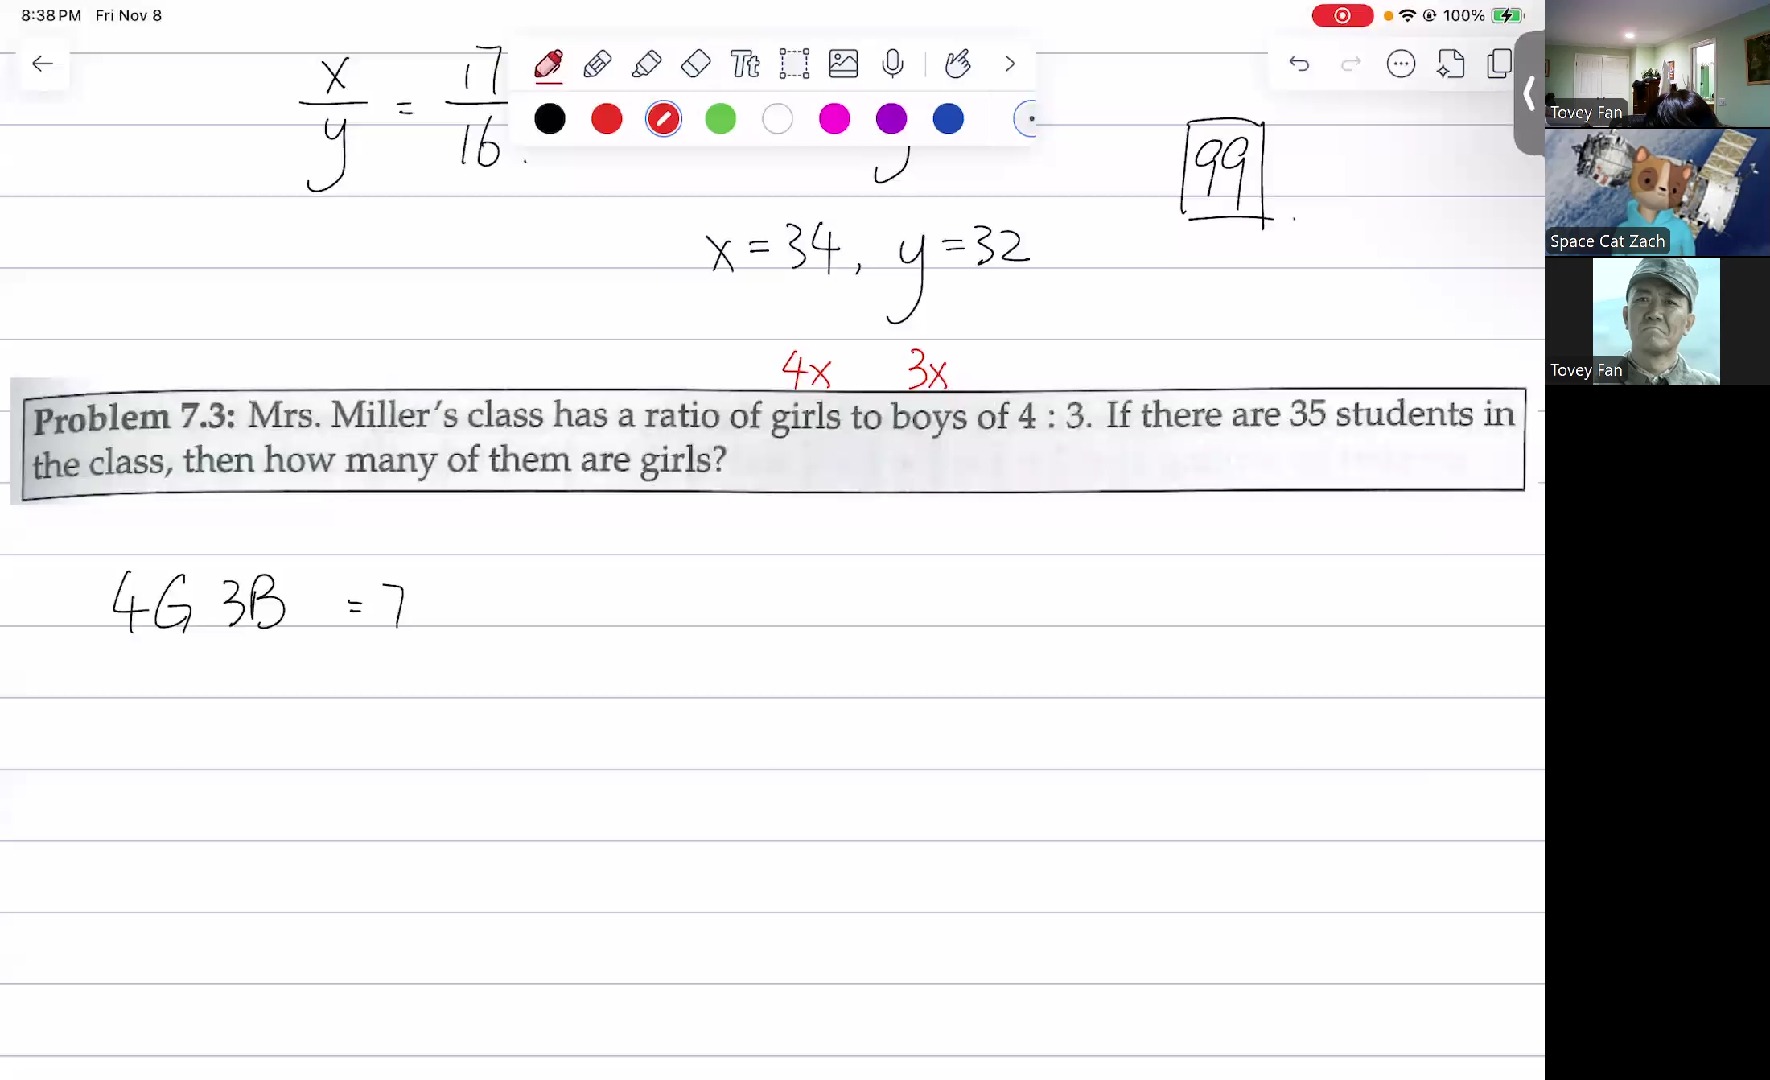 8:38 PM Fri Nov 8
100%
x/y = 17/16.
y
99
x = 34, y = 32
4x 3x
Problem 7.3: Mrs. Miller's class has a ratio of girls to boys of 4 : 3. If there are 35 students in
the class, then how many of them are girls?
4G 3B = 7
Tt
Tovey Fan
Space Cat Zach
Tovey Fan